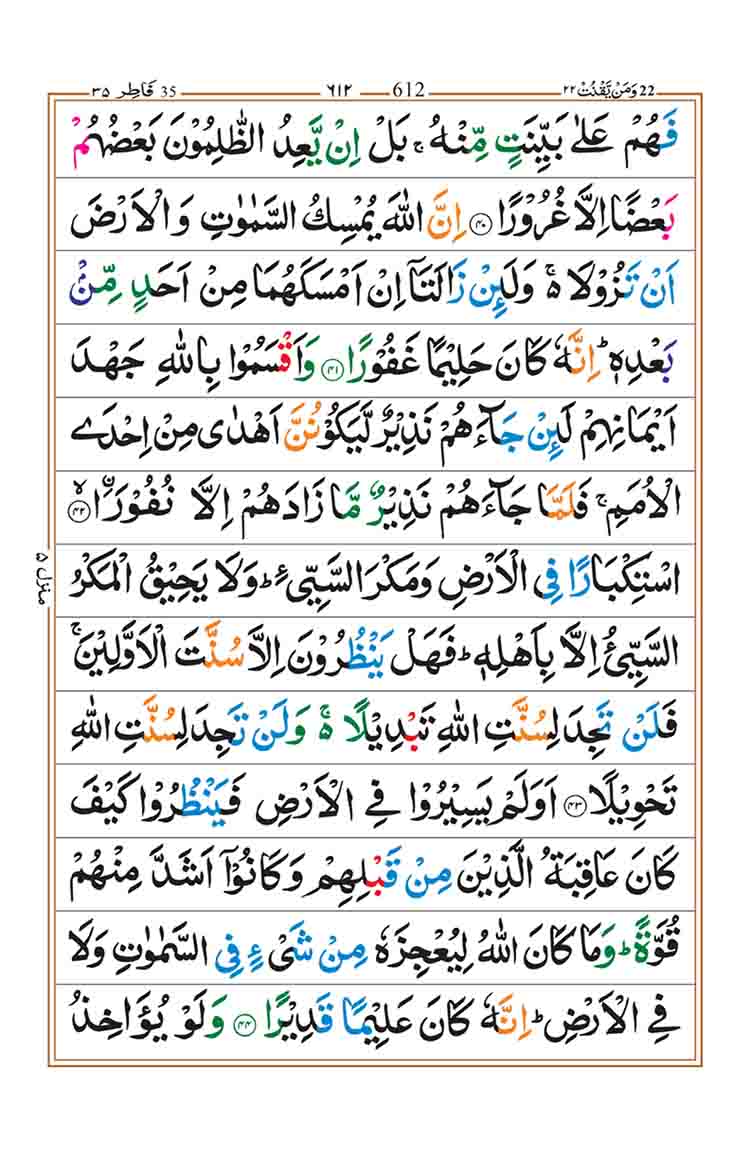 22 وَمَنْ يَّقْنُتْ ٢٢ 612 ٦١٢ 35 فَاطِر ٣٥
فَهُمْ عَلٰى بَيِّنَتٍ مِّنْهُ ۚ بَلْ اِنْ يَّعِدُ الظّٰلِمُوْنَ بَعْضُهُمْ
بَعْضًا اِلَّا غُرُوْرًا ۝٤٠ اِنَّ اللّٰهَ يُمْسِكُ السَّمٰوٰتِ وَالْاَرْضَ
اَنْ تَزُوْلَا ەۚ وَلَئِنْ زَالَتَاۤ اِنْ اَمْسَكَهُمَا مِنْ اَحَدٍ مِّنْۢ
بَعْدِهٖ ؕ اِنَّهٗ كَانَ حَلِيْمًا غَفُوْرًا ۝٤١ وَاَقْسَمُوْا بِاللّٰهِ جَهْدَ
اَيْمَانِهِمْ لَئِنْ جَآءَهُمْ نَذِيْرٌ لَّيَكُوْنُنَّ اَهْدٰى مِنْ اِحْدَى
الْاُمَمِ ۚ فَلَمَّا جَآءَهُمْ نَذِيْرٌ مَّا زَادَهُمْ اِلَّا نُفُوْرَاۨ ۝٤٢ۙ
اسْتِكْبَارًا فِى الْاَرْضِ وَمَكْرَ السَّيِّیءِ ؕ وَلَا يَحِيْقُ الْمَكْرُ
السَّيِّئُ اِلَّا بِاَهْلِهٖ ؕ فَهَلْ يَنْظُرُوْنَ اِلَّا سُنَّتَ الْاَوَّلِيْنَ ۚ
فَلَنْ تَجِدَ لِسُنَّتِ اللّٰهِ تَبْدِيْلًا ەۚ وَلَنْ تَجِدَ لِسُنَّتِ اللّٰهِ
تَحْوِيْلًا ۝٤٣ اَوَلَمْ يَسِيْرُوْا فِى الْاَرْضِ فَيَنْظُرُوْا كَيْفَ
كَانَ عَاقِبَةُ الَّذِيْنَ مِنْ قَبْلِهِمْ وَكَانُوْۤا اَشَدَّ مِنْهُمْ
قُوَّةً ؕ وَمَا كَانَ اللّٰهُ لِيُعْجِزَهٗ مِنْ شَیْءٍ فِى السَّمٰوٰتِ وَلَا
فِى الْاَرْضِ ؕ اِنَّهٗ كَانَ عَلِيْمًا قَدِيْرًا ۝٤٤ وَلَوْ يُؤَاخِذُ
منزل ۵